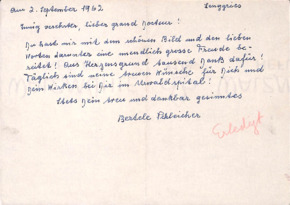 am 2. September 1962 Lenggries
Ewig verehrter, lieber grand Docteur!
Du hast mir mit dem schönen Bild und den lieben
Worten darunter eine unendlich grosse Freude be-
reitet! Aus Herzensgrund tausend Dank dafür!
Täglich sind meine treuen Wünsche für Dich und
Dein Wirken bei Dir im Urwaldspital!
Stets Dein treu und dankbar gesinntes
Bertele
Erledigt